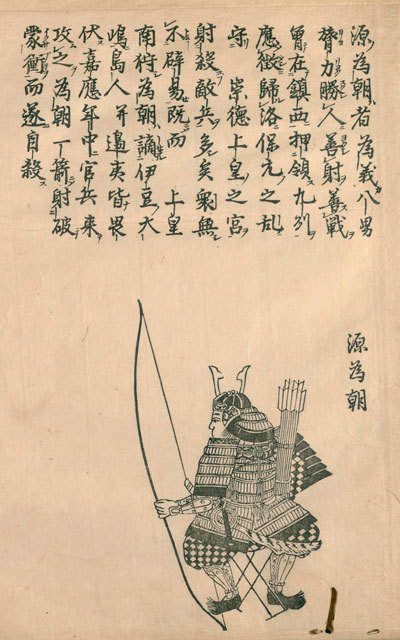 源為朝者為義八男
膂力勝人善射善戰
曾在鎮西押領九州
應徴歸洛保元之乱
守 崇徳上皇之宮
射殺敵兵多矣衆無
不辟易既而 上皇
南狩為朝謫伊豆大
嶋島人并邉夷皆畏
伏嘉應年中官兵来
攻之為朝一箭射破
蒙衝而遂自殺
源為朝